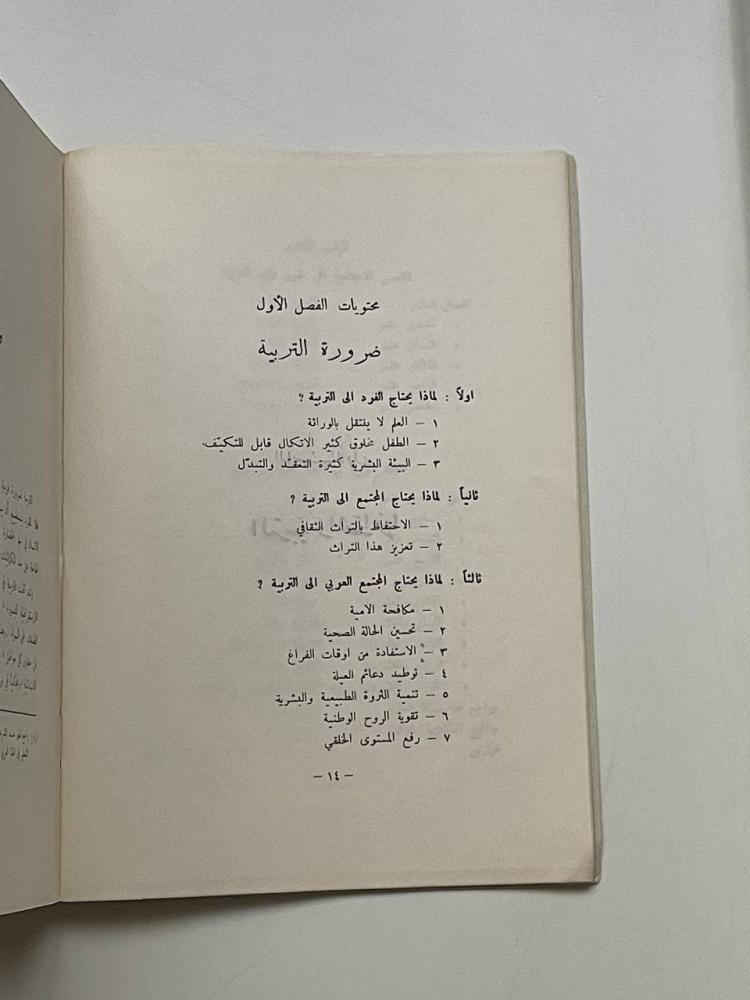 محتويات الفصل الأول
ضرورة التربية
اولاً : لماذا يحتاج الفرد الى التربية ؟
١ – العلم لا ينتقل بالوراثة
٢ – الطفل مخلوق كثير الاتكال قابل للتكيّف.
٣ – البيئة البشرية كثيرة التعقّد والتبدّل
ثانياً : لماذا يحتاج المجتمع الى التربية ؟
١ – الاحتفاظ بالتراث الثقافي
٢ – تعزيز هذا التراث
ثالثاً : لماذا يحتاج المجتمع العربي الى التربية ؟
١ – مكافحة الامية
٢ – تحسين الحالة الصحية
٣ – الاستفادة من اوقات الفراغ
٤ – توطيد دعائم العيلة
٥ – تنمية الثروة الطبيعية والبشرية
٦ – تقوية الروح الوطنية
٧ – رفع المستوى الخلقي
– ١٤ –